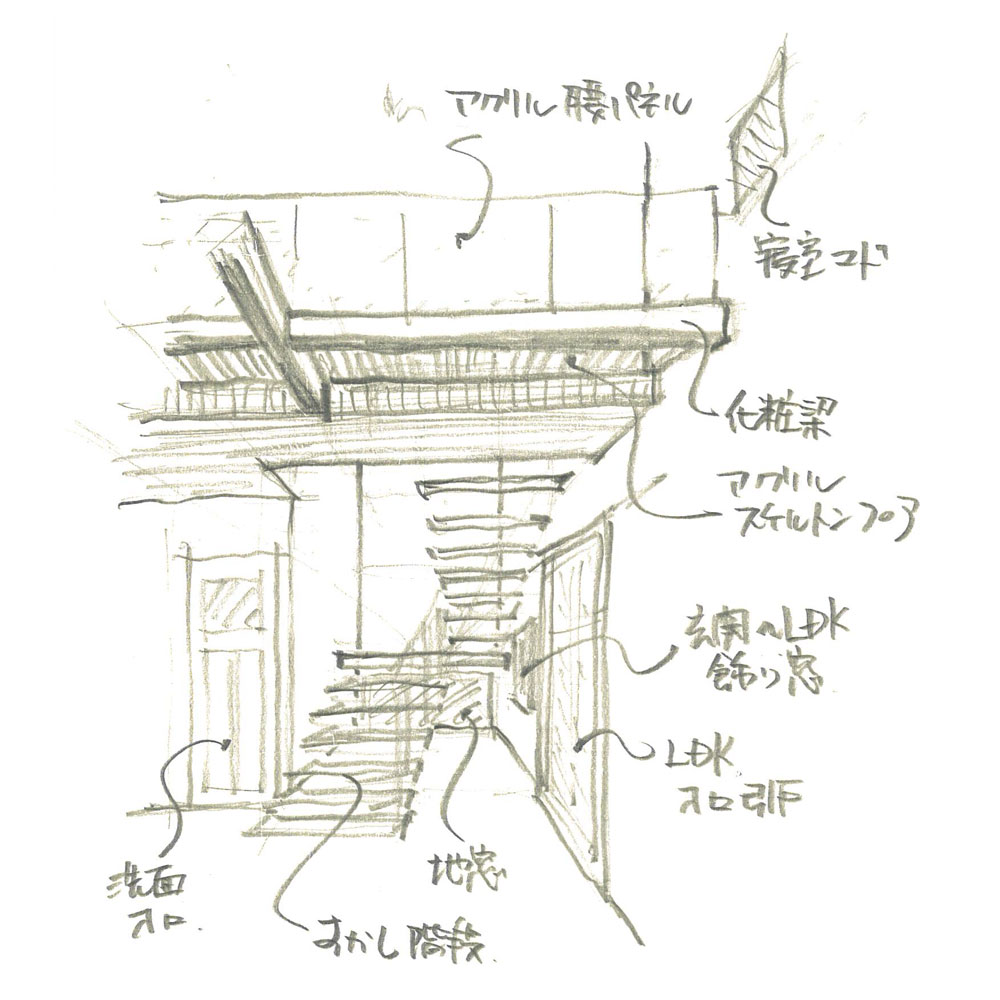 アクリル 腰パネル
寝室マド
化粧梁
アクリル
スケルトンフロア
玄関へLDK
飾り窓
LDK
入口引戸
地窓
すかし階段.
洗面
入口.